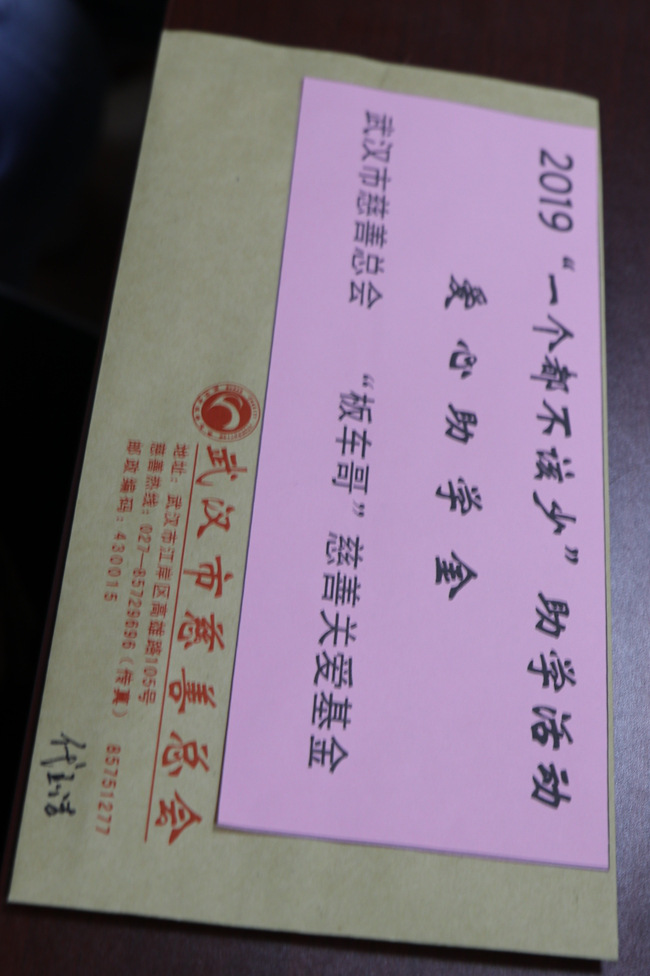 2019“一个都不该少”助学活动
爱心助学金
武汉市慈善总会 “板车哥”慈善关爱基金
武汉市慈善总会
地址：武汉市江岸区高雄路105号
慈善热线：027—85729696（传真） 85751277
邮政编码：430015